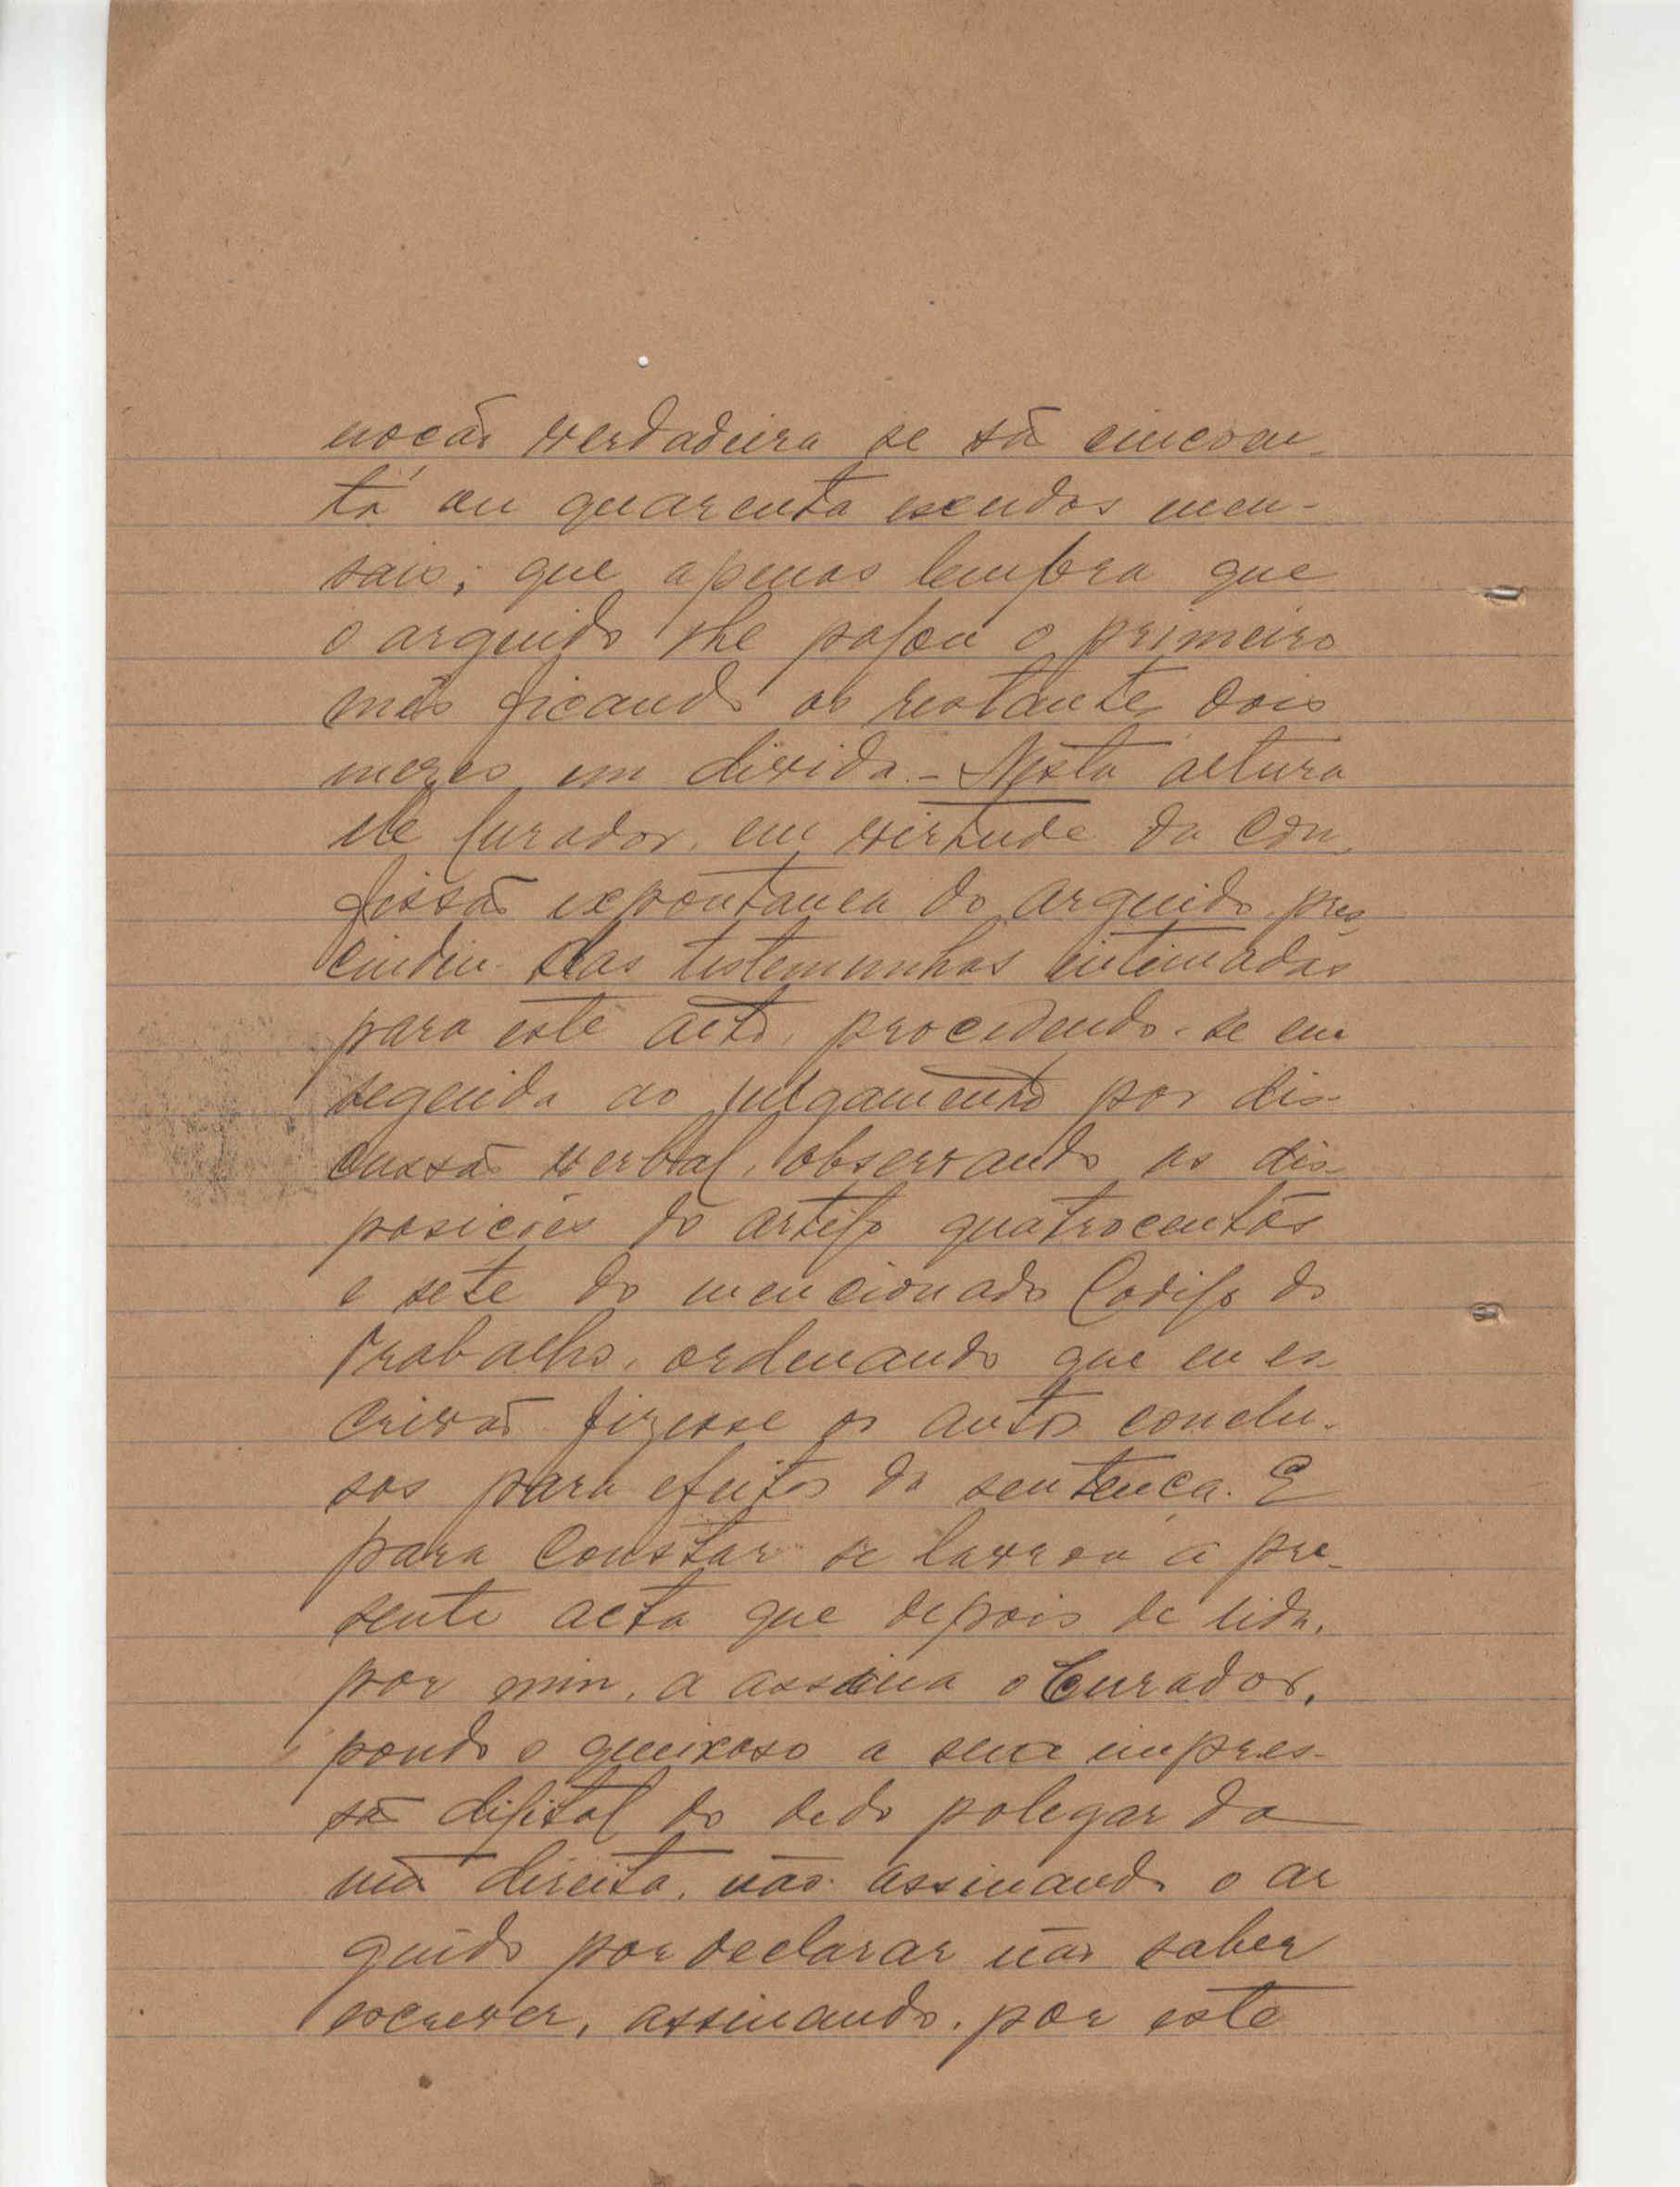 nocão verdadeira se sã cincoen-
tá ou quarenta escudos men-
sais; que apenas lembra que
o arguido lhe pagou o primeiro
mês ficando os restante dois
mezes em divida.- Nesta altura
ele Curador, em virtude da con-
fissão expontanea do arguido pres
cindiu das testemunhas intimadas
para este acto, procedendo-se em
seguida ao julgamento por dis-
cussão verbal, observando as dis-
posicões do artigo quatrocentos
e sete do mencionado Codigo do
Trabalho, ordenando que eu es-
crivão fizesse os autos conclu-
sos para efeitos da sentença. E
para constar se lavrou a pre-
sente acta que depois de lida,
por mim, a assina o Curador,
pondo o queixoso a sua impres-
sã digital do dedo polegar da
mã direita, não assinando o ar
guido por declarar não saber
escrever, assinando, por este